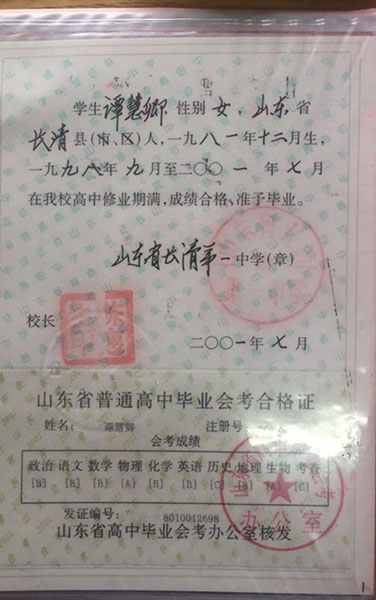 学生 谭慧卿 性别 女, 山东 省
长清 县(市、区)人,一九八一年十二月生,
一九九八年 九月至二〇〇一 年 七 月
在我校高中修业期满,成绩合格、准予毕业。
山东省长清第一中学(章)
校长
二〇〇一年 七 月
山东省普通高中毕业会考合格证
姓名: 注册号:
会考成绩
政治 语文 数学 物理 化学 英语 历史 地理 生物 考查
[B] [B] [B] [A] [B] [B] [C] [B] [A] [C]
发证编号: 8010042698
山东省高中毕业会考办公室核发
办公室